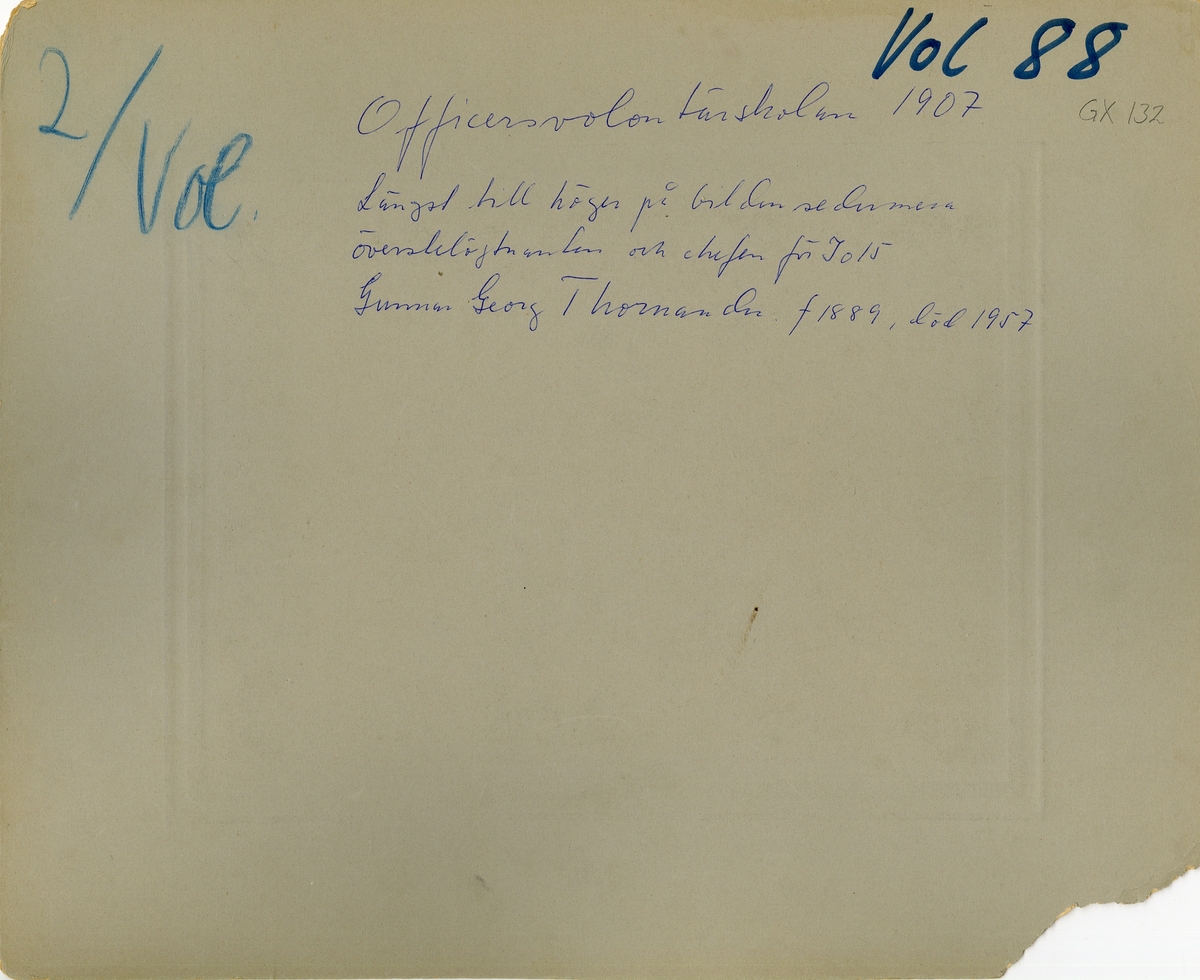 Vol 88
2/Vol.
Officersvolontärskolan 1907
GX 132
Längst till höger på bilden sedermera
överstelöjtnanten och chefen för Io15
Gunnar Georg Thornander. f 1889, död 1957